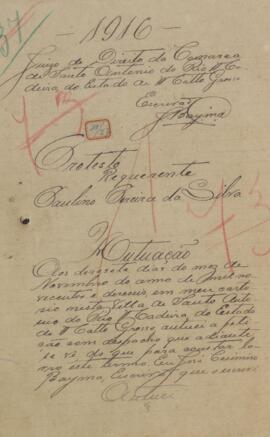 — 1916 —
Juizo de Direito da Comarca
de Santo Antonio do Rio Ma-
deira, do Estado de Matto Grosso
Escrivão
Bayma
Protesto
Requerente
Paulino Pereira da Silva
Autuação
Aos dezseis dias do mez de
Novembro do anno de mil no-
vecentos e dezeseis, em meu carto-
rio nesta Villa de Santo Anto-
nio do Rio Madeira, do Estado
de Matto Grosso, autuei a peti-
ção com despacho que adiante
se vê, do que para constar la-
vro este termo. Eu, José Casimiro
Bayma, Escrivão, que escrevi
Autuei